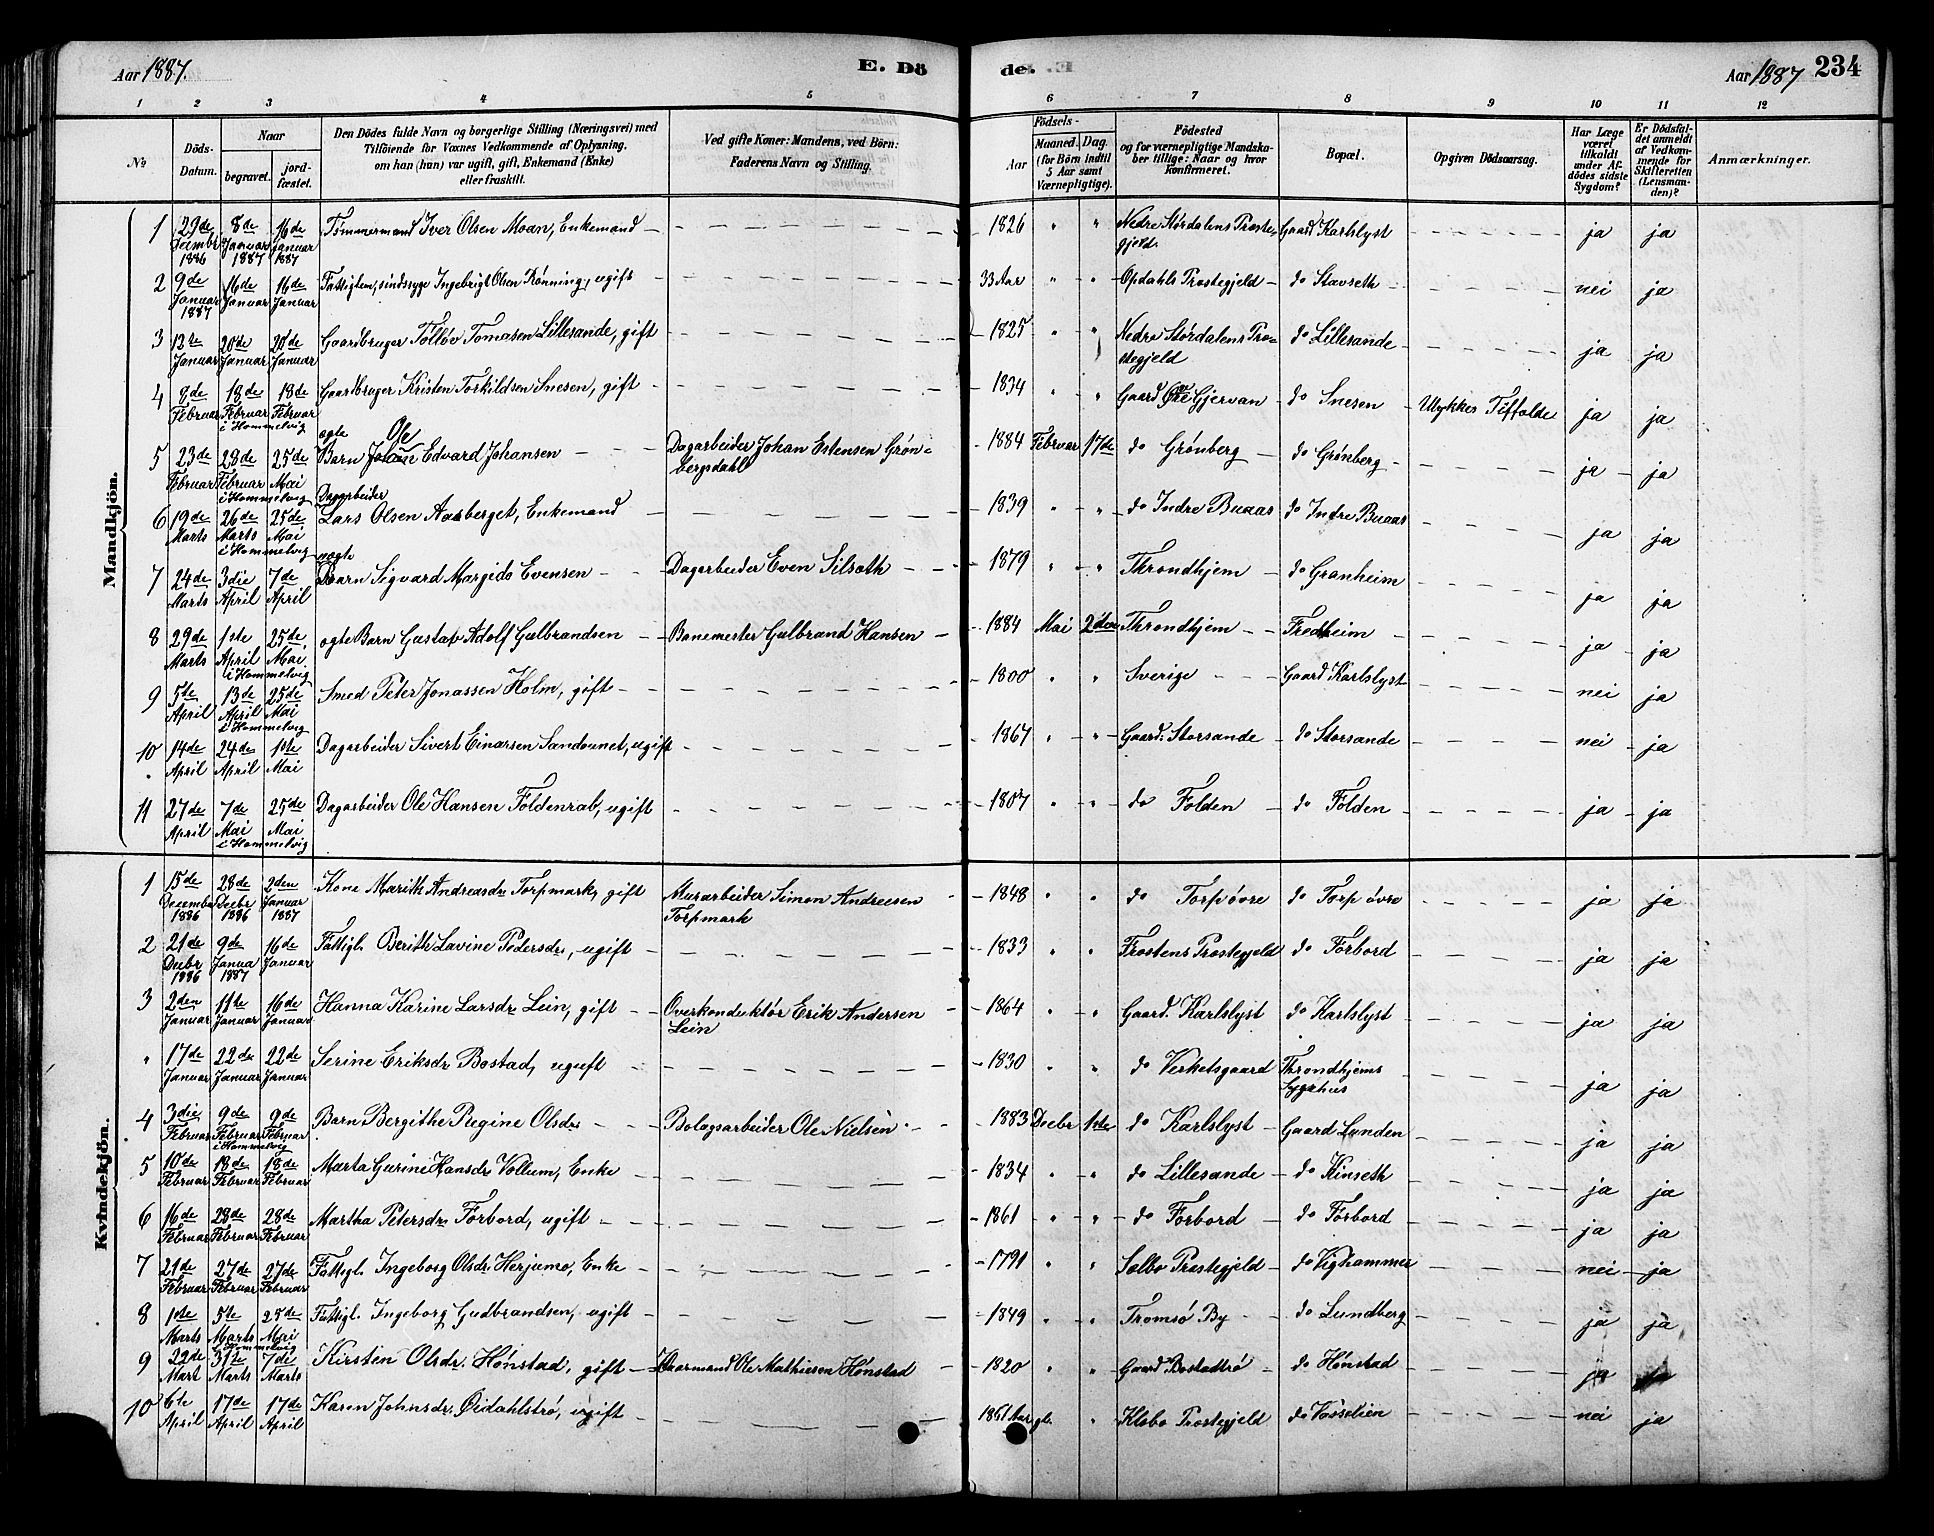 Aar 1887. E. Dö
de. Aar 1887 234
1 2 3 4 5 6 7 8 9 10 11 12
No
Döds-Datum.
Naar
begravet.
jord-fæstet.
Den Dödes fulde Navn og borgerlige Stilling (Næringsvei) med
Tilföiende for Voxnes Vedkommende af Oplysning,
om han (hun) var ugift, gift, Enkemand (Enke)
eller fraskilt.
Ved gifte Koner: Mandens, ved Börn:
Faderens Navn og Stilling.
Födsels-
Aar
Maaned. Dag.
(for Börn indtil
5 Aar samt
Værnepligtige).
Födested
og for værnepligtige Mandska-
ber tillige: Naar og hvor
konfirmeret.
Bopæl.
Opgiven Dödsaarsag.
Har Læge
været
tilkaldt
under Af-
dödes sidste
Sygdom?
Er Dödsfal-
det anmeldt
af Vedkom-
mende for
Skifteretten
(Lensman-
den)?
Anmærkninger.
Mandkjön.
1 29de Decmbr 1886 8de Januar 1887 16de Januar 1887 Tømmermand Iver Olsen Moan, Enkemand 1826 " " Nedre Størdalens Præste-gjeld. Gaard Karlslyst ja ja
2 9de Januar 1887 16de Januar 16de Januar Fattiglem, sindssyge Ingebrigt Olsen Rønning, ugift 33 Aar " " Opdahls Præstegjeld do Stavseth nei ja
3 13te Januar 20de Januar 20de Januar Gaardbruger Tolløv Tomasen Lillesande, gift 1825 " " Nedre Størdalens Præ-stegjeld do Lillesande ja ja
4 8de Februar 18de Februar i Hommelvig 18de Februar Gaardbruger Kristen Torkildsen Snesen, gift 1834 " " Gaard Øvre Gjervan do Snesen Ulykkes Tilfælde ja ja
5 23de Februar 28de Februar i Hommelvig 25de Mai ægte Barn Ole Edvard Johansen Dagarbeider Johan Estensen Grøn-bergsdahl 1884 Februar 17de do Grønberg do Grønberg ja ja
6 19de Marts 26de Marts i Hommelvig 25de Mai Dagarbeider Lars Olsen Aasberget, Enkemand 1839 " " do Indre Buaas do Indre Buaas ja ja
7 24de Marts 3die April 7de April uægte Barn Sigvard Margido Evensen Dagarbeider Even Silseth 1879 " " Throndhjem do Granheim ja ja
8 29de Marts 1ste April i Hommelvig 25de Mai ægte Barn Gustav Adolf Gulbrandsen Banemester Gulbrand Hansen 1884 Mai 2den Throndhjem Fredheim ja ja
9 5te April 13de April i Hommelvig 25de Mai Smed Peter Jonassen Holm, gift 1800 " " Sverige Gaard Karlslyst nei ja
10 14de April 24de April 1ste Mai Dagarbeider Sivert Einarsen Sandmunet, ugift 1867 " " Gaard. Storsande do Storsande nei ja
11 27de April 7de Mai i Hommelvig 25de Mai Dagarbeider Ole Hansen Foldenrab, ugift 1807 " " do Folden do Folden ja ja
Kvindekjön.
1 15de December 1886 28de Decbr 1886 2den Januar 1887 Kone Marith Andreasdr Torpmark, gift Murarbeider Simon Andresen Torpmark 1848 " " do Torp øvre do Torp øvre ja ja
2 21de Decbr 1886 9de Janua 1887 16de Januar Fattigl. Berith Lavine Pedersdr, ugift 1833 " " Frostens Præstegjeld do Forbord ja ja
3 2den Januar 11te Januar 16de Januar Hanna Karine Larsdr. Lein, gift Overkonduktør Erik Andersen Lein 1864 " " Gaard. Karlslyst do Karlslyst ja ja
" 17de Januar 22de Januar 22de Januar Serine Eriksdr Bostad, ugift 1830 " " do Verketsgaard Throndhjems Sygehus ja ja
4 3die Februar 9de Februar i Hommelvig 9de Februar Barn Bergithe Regine Olsdr Bolagsarbeider Ole Nielsen 1883 Decbr 1ste do Karlslyst Gaard Lunden ja ja
5 10de Februar 18de Februar 18de Februar Marta Gurine Hansdr Vollum, Enke 1834 " " do Lillesande do Kinseth ja ja
6 16de Februar 28de Februar 28de Februar Martha Petersdr Forbord, ugift 1861 " " do Forbord do Forbord ja ja
7 21de Februar 27de Februar 27de Februar Fattigl. Ingeborg Olsdr. Herjumo, Enke 1791 " " Selbo Præstegjeld do Vighammer nei ja
8 1ste Marts 5te Marts i Hommelvig 25de Mai Fattigl. Ingeborg Gudbrandsen, ugift 1849 " " Tromsø By do Lundberg ja ja
9 22de Mart 31te Marts 7de Marts Kirsten Olsdr. Hønstad, gift Ole Mathiesen Hønstad 1820 " " Gaard Bostadtrø do Hønstad ja
10 6te April 17de April 17de April Karen Johnsdr. Øidahlstrø, ugift 1861 Aar gl. " Klæbo Præstegjeld do nei ja